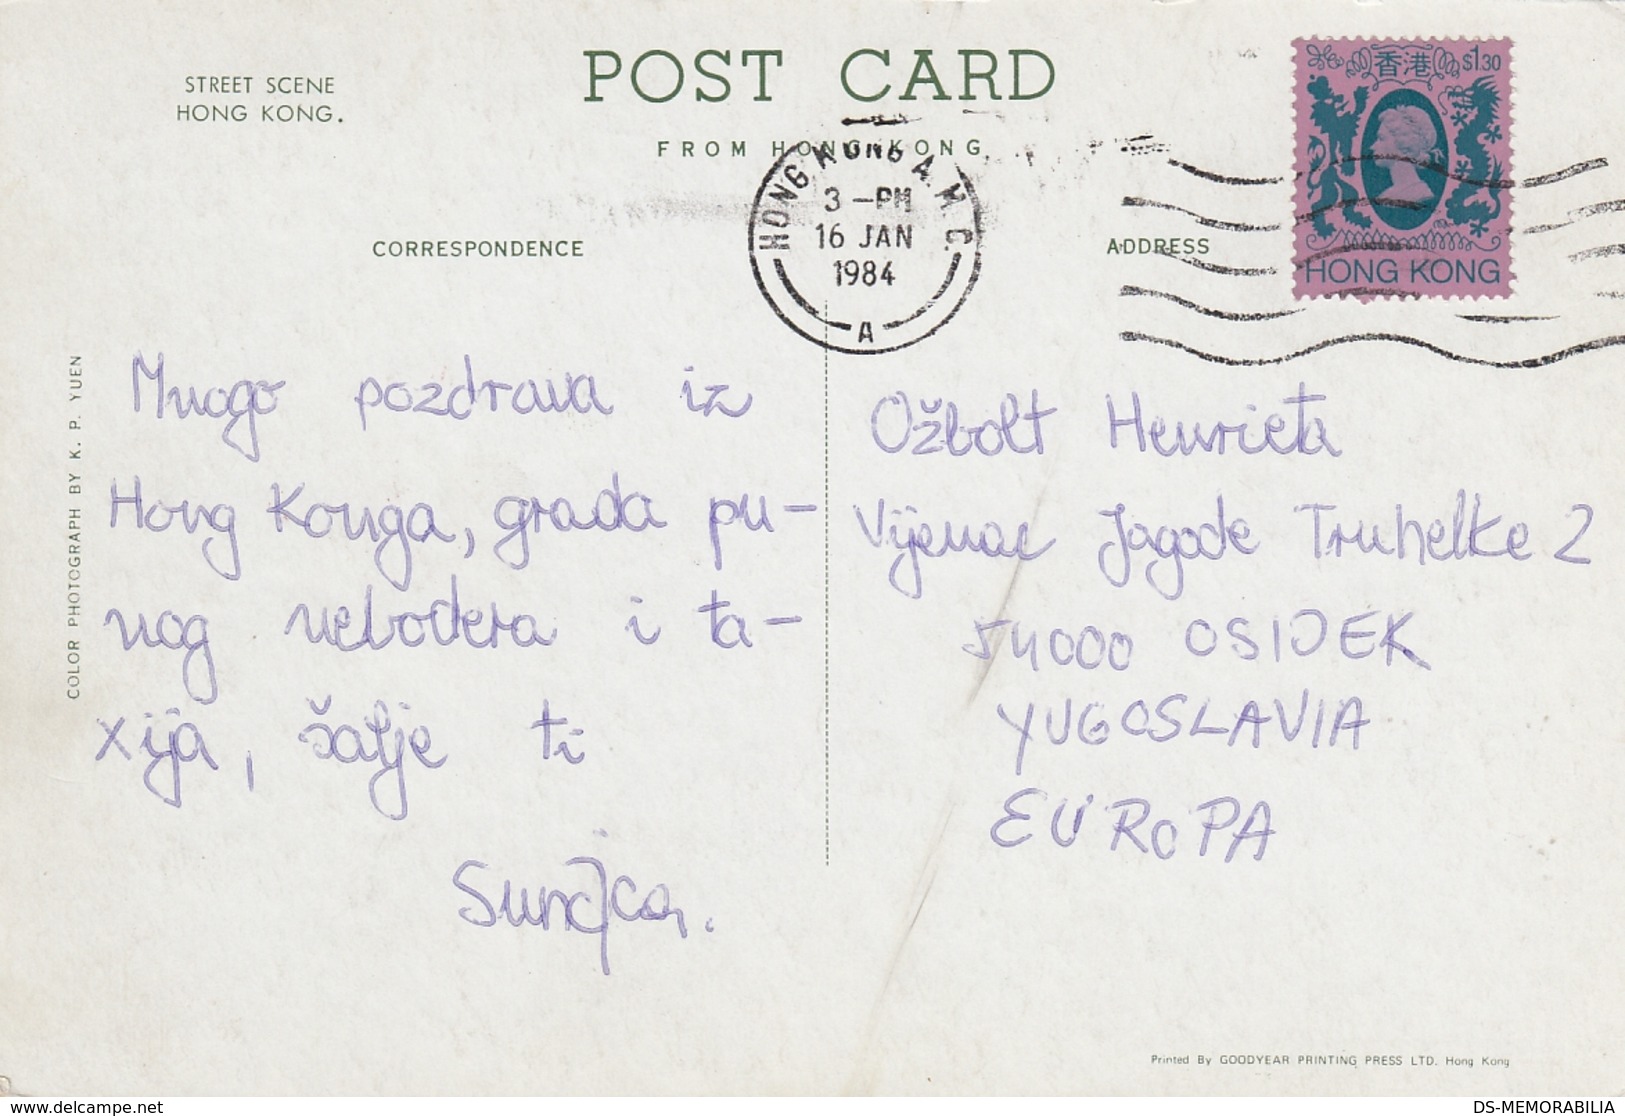 STREET SCENE
HONG KONG.
POST CARD
FROM HONG KONG
HONG KONG A.M.C.
3 -PM
16 JAN
1984
A
香港 $1.30
HONG KONG
CORRESPONDENCE
ADDRESS
COLOR PHOTOGRAPH BY K. P. YUEN
Mnogo pozdrava iz
Hong Konga, grada pu-
nog nebodera i ta-
xija, šalje ti
Sunčica.
Ožbolt Henrieta
Vijenac Jagode Truhelke 2
54000 OSIJEK
YUGOSLAVIA
EUROPA
Printed By GOODYEAR PRINTING PRESS LTD. Hong Kong
delcampe.net
DS-MEMORABILIA